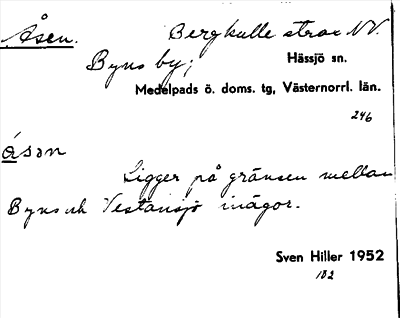 Åsen. Bergkulle strax NV.
Byns by; Hässjö sn.
Medelpads ö. doms. tg, Västernorrl. län.
246
åsən
Ligger på gränsen mellan
Byns och Vestansjö inägor.
Sven Hiller 1952
182